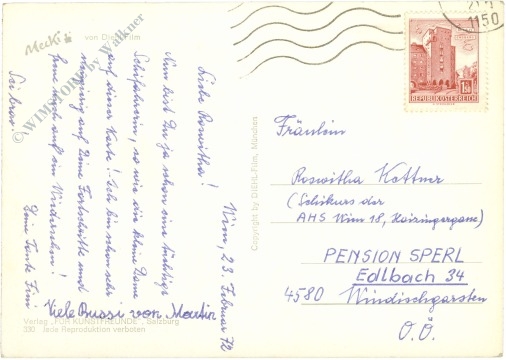 Mecki
von Diehl Film
© WIMSTORE by Walkner
1150
REPUBLIK ÖSTERREICH
Wien, 23. Februar 72
Liebe Roswitha!
Nun bist Du ja schon eine tüchtige
Schifahrerin, so wie die kleine Dame
auf dieser Karte! Ich bin schon sehr
neugierig auf Deine Fortschritte und
freue mich auf ein Wiedersehen!
Sei brav!
Deine Tante Fini
Viele Bussi von Martin
Verlag „FÜR KUNSTFREUNDE", Salzburg
330 Jede Reproduktion verboten
Copyright by DIEHL-Film, München
Fräulein
Roswitha Kottner
(Schikurs der
AHS Wien 18, Haizingergasse)
PENSION SPERL
Edlbach 34
4580 Windischgarsten
O.Ö.